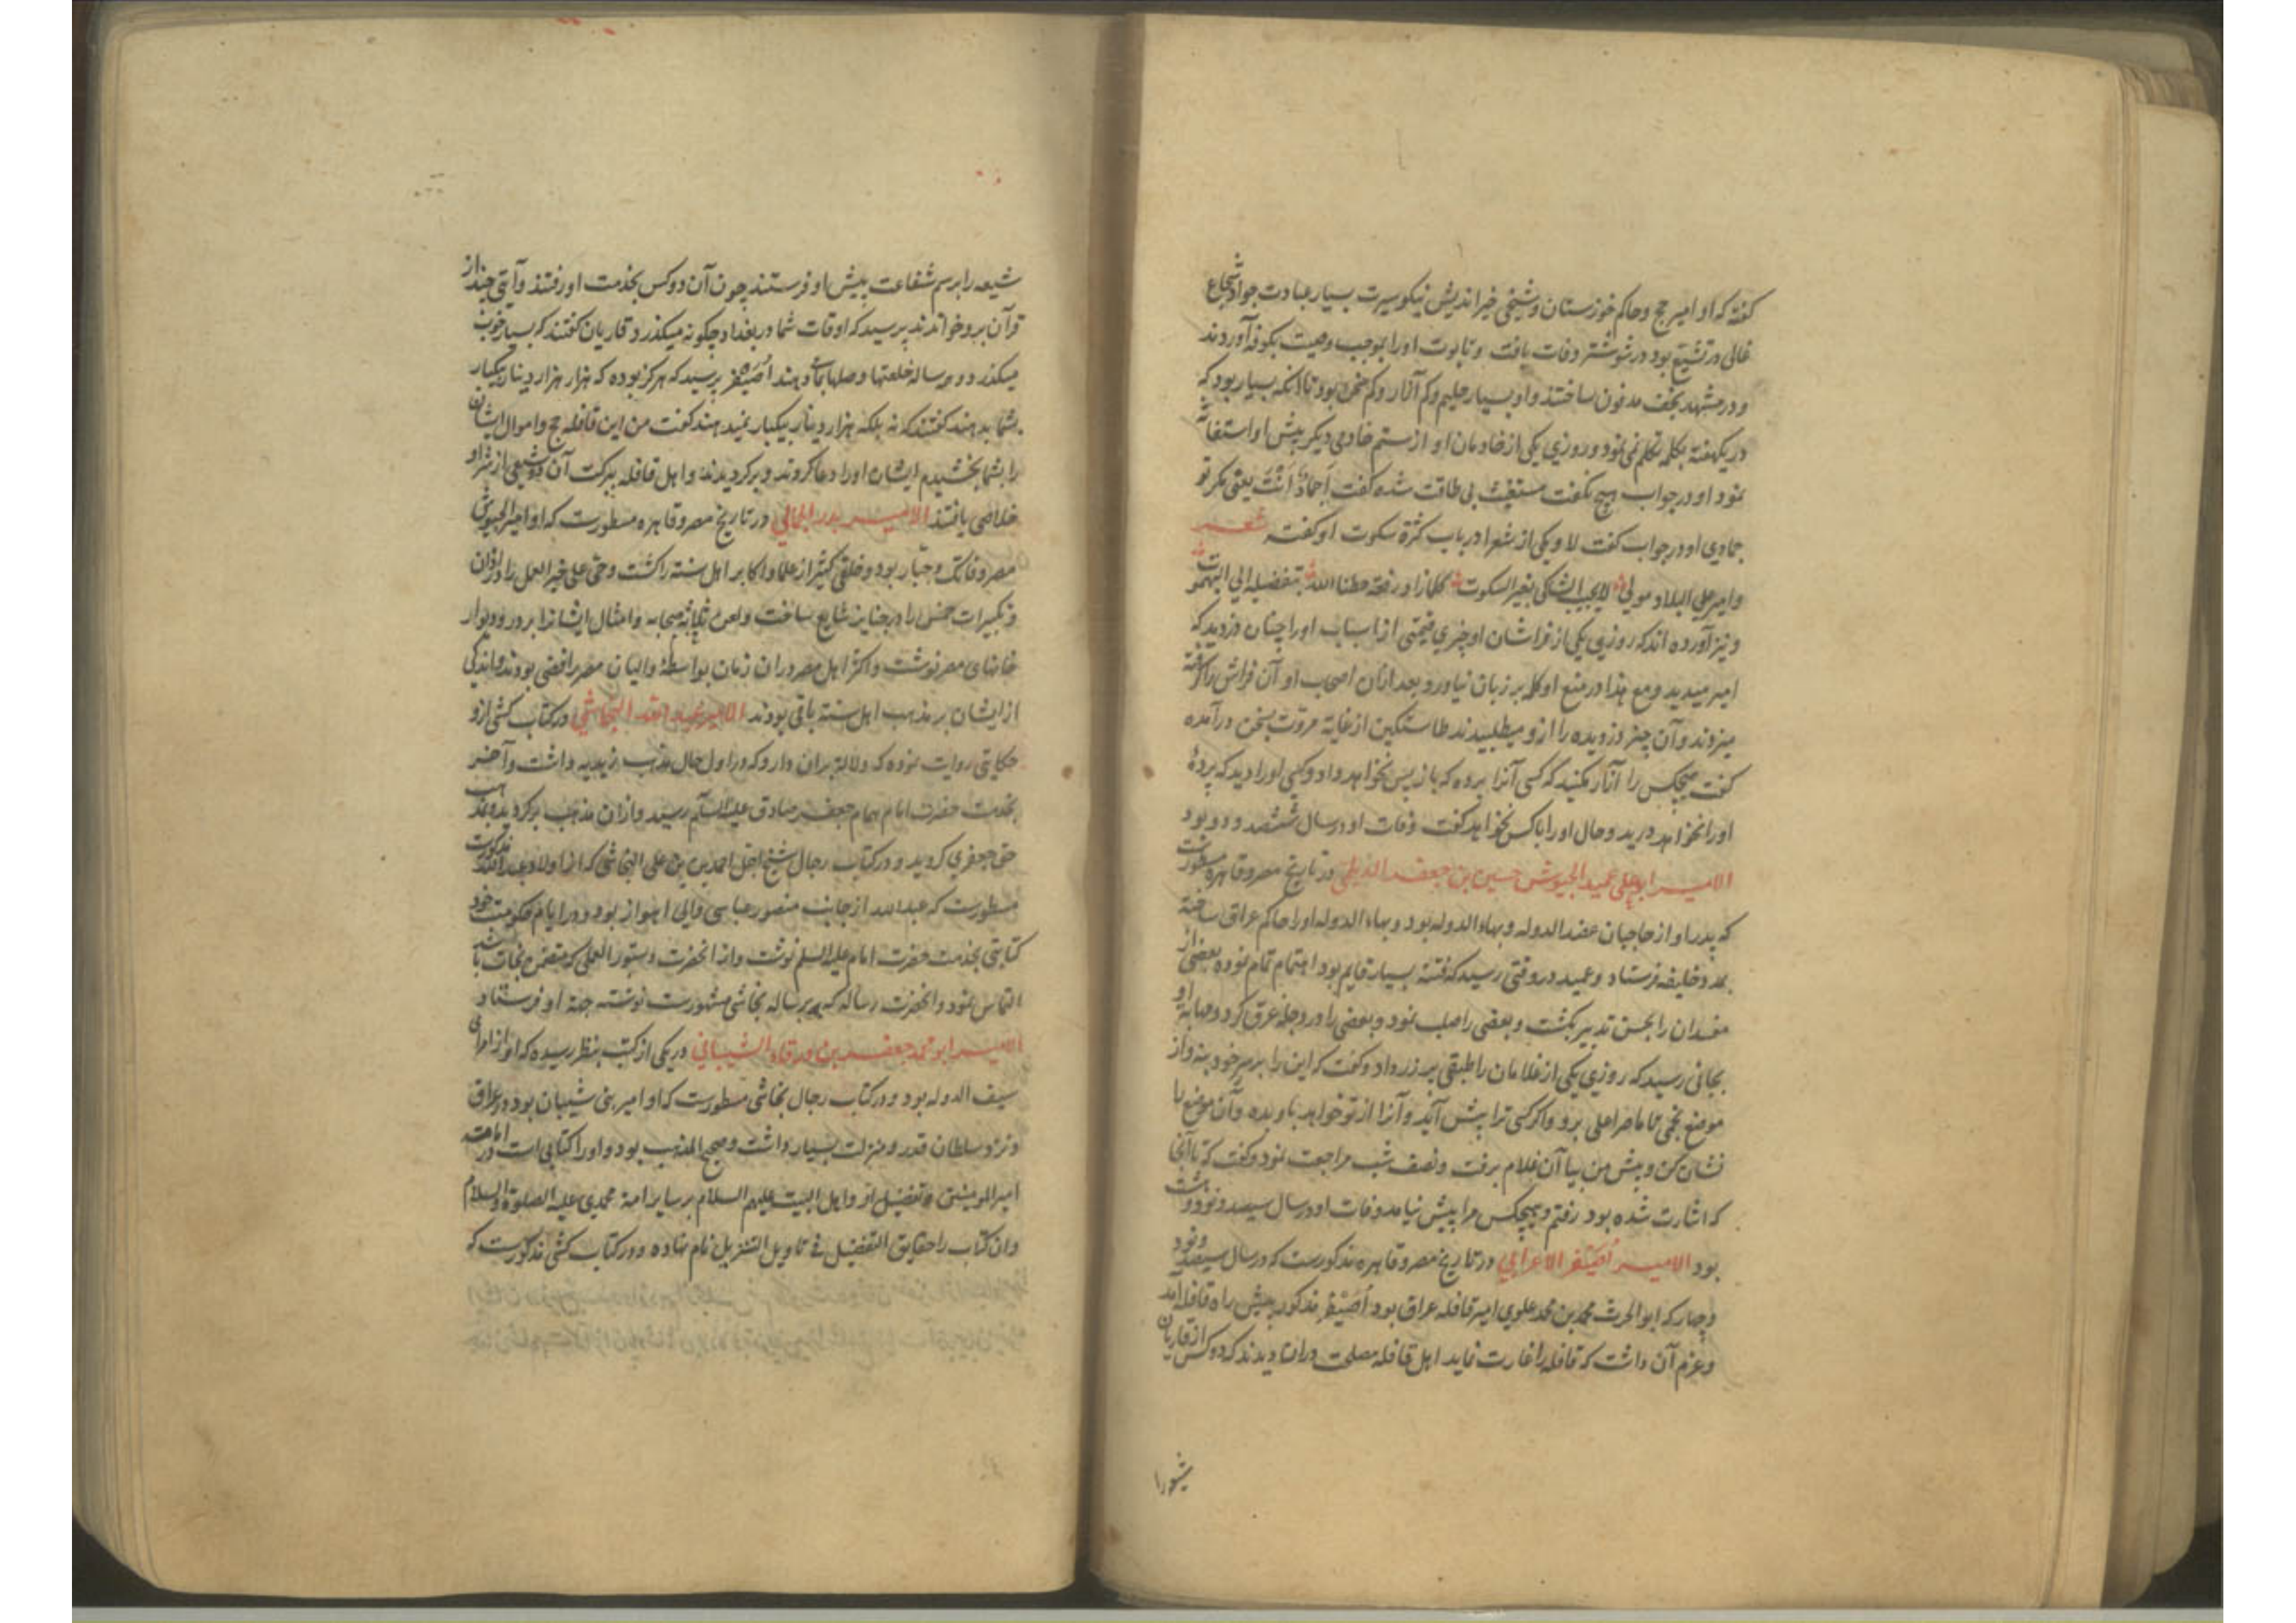 کفته که او امیر حج و حاکم خوزستان و شیخی خیراندیش نیکو سیرت بسیار عبادت جواد شجاع
غالی در تشیع بود در شوشتر وفات یافت و تابوت او را بموجب وصیت بکوفه آوردند
و در مشهد نجف مدفون ساختند و او بسیار حلیم و کم آزار و کم سخن بود تا آنکه بسیار بود که
در یکهفته بکلمه تکلم نمی نمود و روزی یکی از خادمان او از ستم خادمی دیکر پیش او استغاثه
نمود او در جواب هیچ نکفت مستغیث بی طاقت شده کفت أجمادٌ انت یعنی مکر تو
جمادی او در جواب کفت لا و یکی از شعرا در باب کثرة سکوت او کفته شعر
وامیر علی البلاد مولی لایجیب الشاکی بغیر السکوت کلما زاد رفعة حطنا الله بتفضیله الی البهموت
و نیز آورده اند که روزی یکی از فراشان او چیزی قیمتی از اسباب او را چنان دزدید که
امیر میدید و مع هذا در منع او کلمه بر زبان نیاورد و بعد ازان اصحاب او آن فراش را کرفته
میزدند و آن چیز دزدیده را ازو میطلبیدند طاستکین از غایة مروت بسخن درآمده
کفت هیچکس را آزار مکنید که کسی آنرا برده که بازپس نخواهد داد و کسی او را دیده که پردۀ
او را نخواهد درید و حال او را با کس نخواهد کفت وفات او در سال ششصد و دو بود
الامیر ابو علی عمید الجیوش حسین بن جعفر الدیلمی در تاریخ مصر و قاهره مسطورست
که پدر او از حاجبان عضد الدوله و بهاء الدوله بود و بهاء الدوله او را حاکم عراق ساخته
بمدد خلیفه فرستاد و عمید در وقتی رسید که فتنه بسیار قایم بود اهتمام تمام نموده بعضی از
مفسدان را بحسن تدبیر بکشت و بعضی را صلب نمود و بعضی را در دجله غرق کرد و مهابة او
بجائی رسید که روزی یکی از غلامان را طبقی پر زر داد و کفت که این را بر سر خود بنه و از
موضع نجمی تا ماصر اعلی برو و اکر کسی ترا پیش آید و آنرا از تو خواهد باو بده و آن موضع را
نشان کن و پیش من بیا آن غلام برفت و نصف شب مراجعت نمود و کفت که تا آنجا
که اشارت شده بود رفتم و هیچکس مرا پیش نیامد وفات او در سال سیصد و نود و
بود الامیر اُصَیفر الاعرابی در تاریخ مصر و قاهره مذکورست که در سال سیصد و نود
و چهار که ابو الحرث محمد بن محمد علوی امیر قافله عراق بود اُصَیْفر مذکور پیش راه قافله آمد
و عزم آن داشت که قافله را غارت نماید اهل قافله مصلحت در آن دیدند که دو کس از قاریان
شیعه را برسم شفاعت پیش او فرستند چون آن دو کس بخدمت او رفتند و آیتی چند از
قرآن برو خواندند پرسید که اوقات شما در بغداد چکونه میکذرد قاریان کفتند که بسیار خوب
میکذرد و هر ساله خلعتها و صلها بما میدهند اُصَیْفر پرسید که هرکز بوده که هزار هزار دینار بیکبار
بشما بدهند کفتند که نه بلکه هزار دینار بیکبار نمیدهند کفت من این قافله حج و اموال ایشان
را بشما بخشیدم ایشان او را دعا کردند و برکردیدند و اهل قافله ببرکت آن دو شیعی از شر او
خلاصی یافتند الامیر بدر الجمالی در تاریخ مصر و قاهره مسطورست که او امیر الجیوش
مصر و فاتک و جبار بود و خلقی کثیر از علما و اکابر اهل سنته را کشت و حی علی خیر العمل را در اذان
و تکبیرات خمس را در جنایز شایع ساخت و لعن ثلاثه صحابه و امثال ایشانرا بر در و دیوار
خانهای مصر نوشت و اکثر اهل مصر در آن زمان بواسطۀ والیان مصر رافضی بودند و اندکی
از ایشان بر مذهب اهل سنته باقی بودند الامیر عبد الله النجاشی در کتاب کشی ازو
حکایتی روایت نموده که دلالة بران دارد که در اول حال مذهب زیدیه داشت و آخر
بخدمت حضرت امام همام جعفر صادق علیه السلام رسید و ازان مذهب برکردید و بمذهب
حق جعفری کروید و در کتاب رجال شیخ اجل احمد بن علی النجاشی که از اولاد عبد الله مذکورست
مسطورست که عبد الله از جانب منصور عباسی والی اهواز بود و در ایام حکومت خود
کتابتی بخدمت حضرت امام علیه السلم نوشت و از آنحضرت دستور العملی که متضمن نجات باشد
التماس نمود و آنحضرت رساله که برساله نجاشی مشهورست نوشته جهة او فرستاد
الامیر ابو محمد جعفر بن ورقاء الشیبانی در یکی از کتب بنظر رسیده که او از امرای
سیف الدوله بود و در کتاب رجال نجاشی مسطورست که او امیر بنی شیبان بود در عراق
و نزد سلطان قدر و منزلت بسیار داشت و صحیح المذهب بود و او را کتابی است در امامت
امیر المومنین و تفضیل او و اهل البیت علیهم السلام بر سایر امة محمدی علیه الصلوة والسلام
و ان کتاب را حقایق التفضیل فی تاویل التنزیل نام نهاده و در کتاب کشی مذکورست که